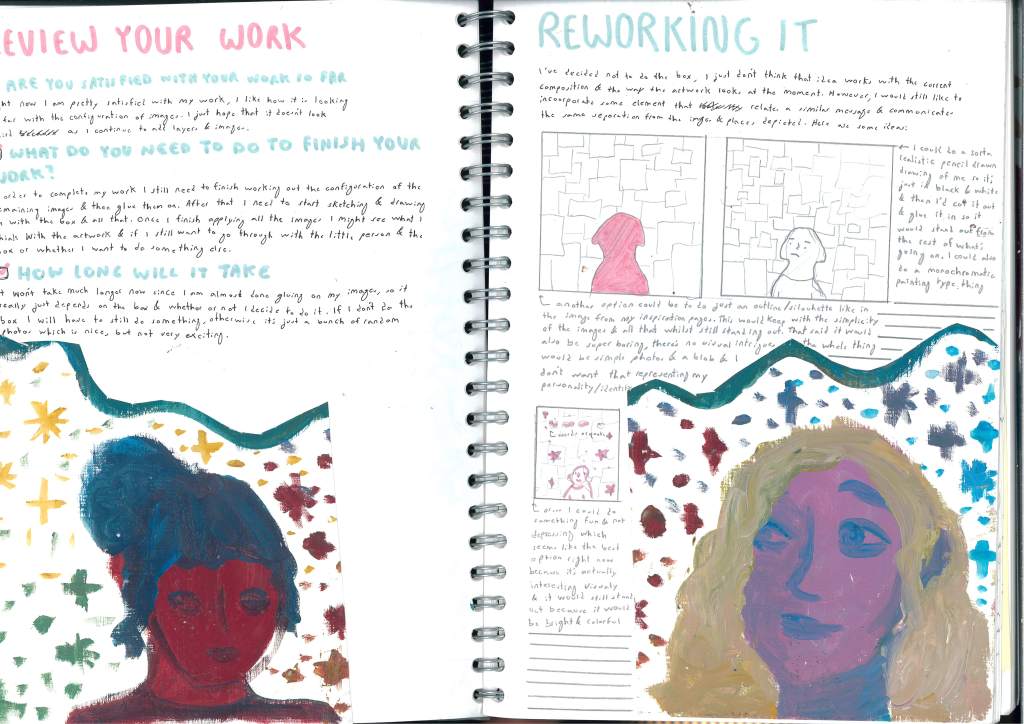 EVIEW YOUR WORK
ARE YOU SATISFIED WITH YOUR WORK SO FAR
ght now I am pretty satisfied with my work, I like how it is looking
far with the configuration of images. I just hope that it doesn't look
as I continue to add layers & images.
WHAT DO YOU NEED TO DO TO FINISH YOUR
WORK?
order to complete my work I still need to finish working out the configuration of the
emaining images & then glue them on. After that I need to start sketching & drawing
with the box & all that. Once I finish applying all the images I might see what I
think with the artwork & if I still want to go through with the little person & the
box or whether I want to do something else.
HOW LONG WILL IT TAKE
t won't take much longer now since I am almost done gluing on my images, so it
really just depends on the box & whether or not I decide to do it. If I don't do the
box I will have to still do something, otherwise it's just a bunch of random
photos which is nice, but not very exciting.
REWORKING IT
I've decided not to do the box, I just don't think that idea works with the current
composition & the way the artwork looks at the moment. However, I would still like to
incorporate some element that relates a similar message & communicates
the same separation from the images & places depicted. Here are some ideas:
← I could do a sorta
realistic pencil drawn
drawing of me so it's
just in black & white
& then I'd cut it out
& glue it in so it
would stand out from
the rest of what's
going on. I could also
do a monochromatic
painting type thing
another option could be to do just an outline/silhouette like in
the image from my inspiration pages. This would keep with the simplicity
of the images & all that whilst still standing out. That said it would
also be super boring, there's no visual intrigue & the whole thing
would be simple photos & a blob & I
don't want that representing my
personality/identity
or I could do
something fun & not
depressing which
seems like the best
option right now
because it's actually
interesting visually
& it would still stand
out because it would
be bright & colorful